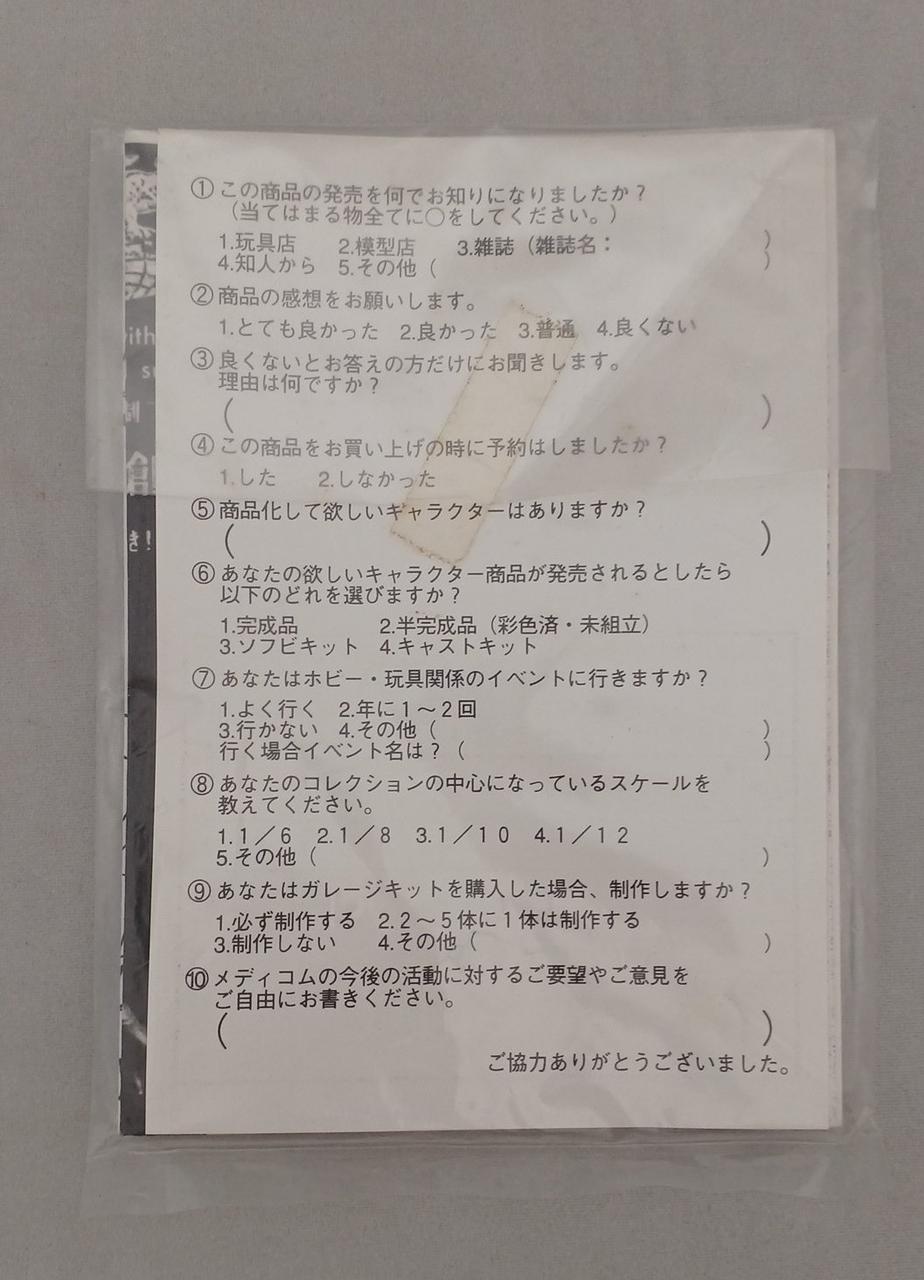 ①この商品の発売を何でお知りになりましたか？
（当てはまる物全てに○をしてください。）
1.玩具店　2.模型店　3.雑誌（雑誌名：　）
4.知人から　5.その他（　）
②商品の感想をお願いします。
1.とても良かった　2.良かった　3.普通　4.良くない
③良くないとお答えの方だけにお聞きします。
理由は何ですか？
（　）
④この商品をお買い上げの時に予約はしましたか？
1.した　2.しなかった
⑤商品化して欲しいキャラクターはありますか？
（　）
⑥あなたの欲しいキャラクター商品が発売されるとしたら
以下のどれを選びますか？
1.完成品　2.半完成品（彩色済・未組立）
3.ソフビキット　4.キャストキット
⑦あなたはホビー・玩具関係のイベントに行きますか？
1.よく行く　2.年に１～２回
3.行かない　4.その他（　）
行く場合イベント名は？（　）
⑧あなたのコレクションの中心になっているスケールを
教えてください。
1.１／６　2.１／８　3.１／１０　4.１／１２
5.その他（　）
⑨あなたはガレージキットを購入した場合、制作しますか？
1.必ず制作する　2.２～５体に１体は制作する
3.制作しない　4.その他（　）
⑩メディコムの今後の活動に対するご要望やご意見を
ご自由にお書きください。
（　）
ご協力ありがとうございました。
ith
き！